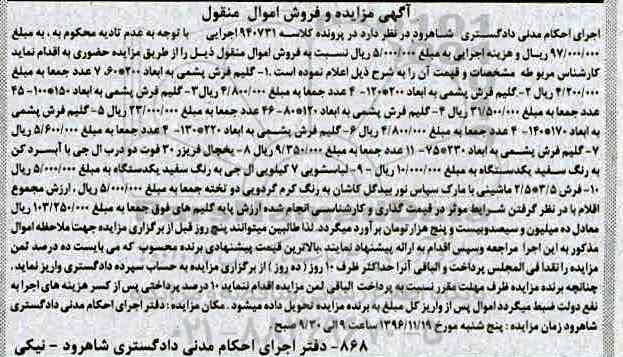 آگهی مزایده و فروش اموال منقول
اجرای احکام مدنی دادگستری شاهرود در نظر دارد در پرونده کلاسه ۹۴۰۷۳۱ اجرایی با توجه به عدم تادیه محکوم به ، به مبلغ
۹۷/۰۰۰/۰۰۰ ریال و هزینه اجرایی به مبلغ ۵/۰۰۰/۰۰۰ ریال نسبت به فروش اموال منقول ذیل را از طریق مزایده حضوری به اقدام نماید
کارشناس مربوطه مشخصات و قیمت آن را به شرح ذیل اعلام نموده است .۱- گلیم فرش پشمی به ابعاد ۲۰۰*۶۰، ۷ عدد جمعا به مبلغ
۴/۲۰۰/۰۰۰ ریال ۲- گلیم فرش پشمی به ابعاد ۲۰۰*۱۲۰- ۴ عدد جمعا به مبلغ ۴/۸۰۰/۰۰۰ ریال۳- گلیم فرش پشمی به ابعاد ۱۵۰*۱۰۰- ۴۵
عدد جمعا به مبلغ ۳۱/۵۰۰/۰۰۰ ریال ۴- گلیم فرش پشمی به ابعاد ۱۲۰*۸۰- ۴۶ عدد جمعا به مبلغ ۲۳/۰۰۰/۰۰۰ ریال ۵- گلیم فرش پشمی
به ابعاد ۱۷۰*۱۴۰- ۴ عدد جمعا به مبلغ ۴/۸۰۰/۰۰۰ ریال ۶- گلیم فرش پشمی به ابعاد ۲۲۰*۱۳۰- ۴ عدد جمعا به مبلغ ۵/۶۰۰/۰۰۰ ریال
۷- گلیم فرش پشمی به ابعاد ۲۳۰*۷۵- ۱۱ عدد جمعا به مبلغ ۹/۳۵۰/۰۰۰ ریال ۸- یخچال فریزر ۳۰ فوت دو درب ال جی با آبسرد کن
به رنگ سفید یکدستگاه به مبلغ ۱۰/۰۰۰/۰۰۰ ریال ۹- لباسشویی ۷ کیلویی ال جی به رنگ سفید یکدستگاه به مبلغ ۵/۰۰۰/۰۰۰ ریال
۱۰- فرش ۳/۵*۲/۵ ماشینی با مارک سپاس نور بیدگل کاشان به رنگ کرم گردویی دو تخته جمعا به مبلغ ۵/۰۰۰/۰۰۰ ریال . ارزش مجموع
اقلام با در نظر گرفتن شرایط موثر در قیمت گذاری و کارشناسی انجام شده ارزش پایه گلیم های فوق جمعا به مبلغ ۱۰۳/۲۵۰/۰۰۰ ریال
معادل ده میلیون و سیصدوبیست و پنج هزار تومان بر آورد میگردد. لذا طالبین میتوانند پنج روز قبل از برگزاری مزایده جهت ملاحظه اموال
مذکور به این اجرا مراجعه وسپس اقدام به ارائه پیشنهاد نمایند .بالاترین قیمت پیشنهادی برنده محسوب که می بایست ده درصد ثمن
مزایده را نقدا فی المجلس پرداخت و الباقی آنرا حداکثر ظرف ۱۰ روز (ده روز ) از برگزاری مزایده به حساب سپرده دادگستری واریز نماید.
چنانچه برنده مزایده ظرف مهلت مقرر نسبت به پرداخت الباقی ثمن مزایده اقدام ننماید ۱۰ درصد پرداختی پس از کسر هزینه های اجرا به
نفع دولت ضبط میگردد اموال پس از واریز کل مبلغ به برنده مزایده تحویل داده میشود . مکان مزایده : دفتر اجرای احکام مدنی دادگستری
شاهرود زمان مزایده : پنج شنبه مورخ ۱۳۹۶/۱۱/۱۹ ساعت ۹ الی ۹/۳۰ صبح .
۸۶۸- دفتر اجرای احکام مدنی دادگستری شاهرود - نیکی